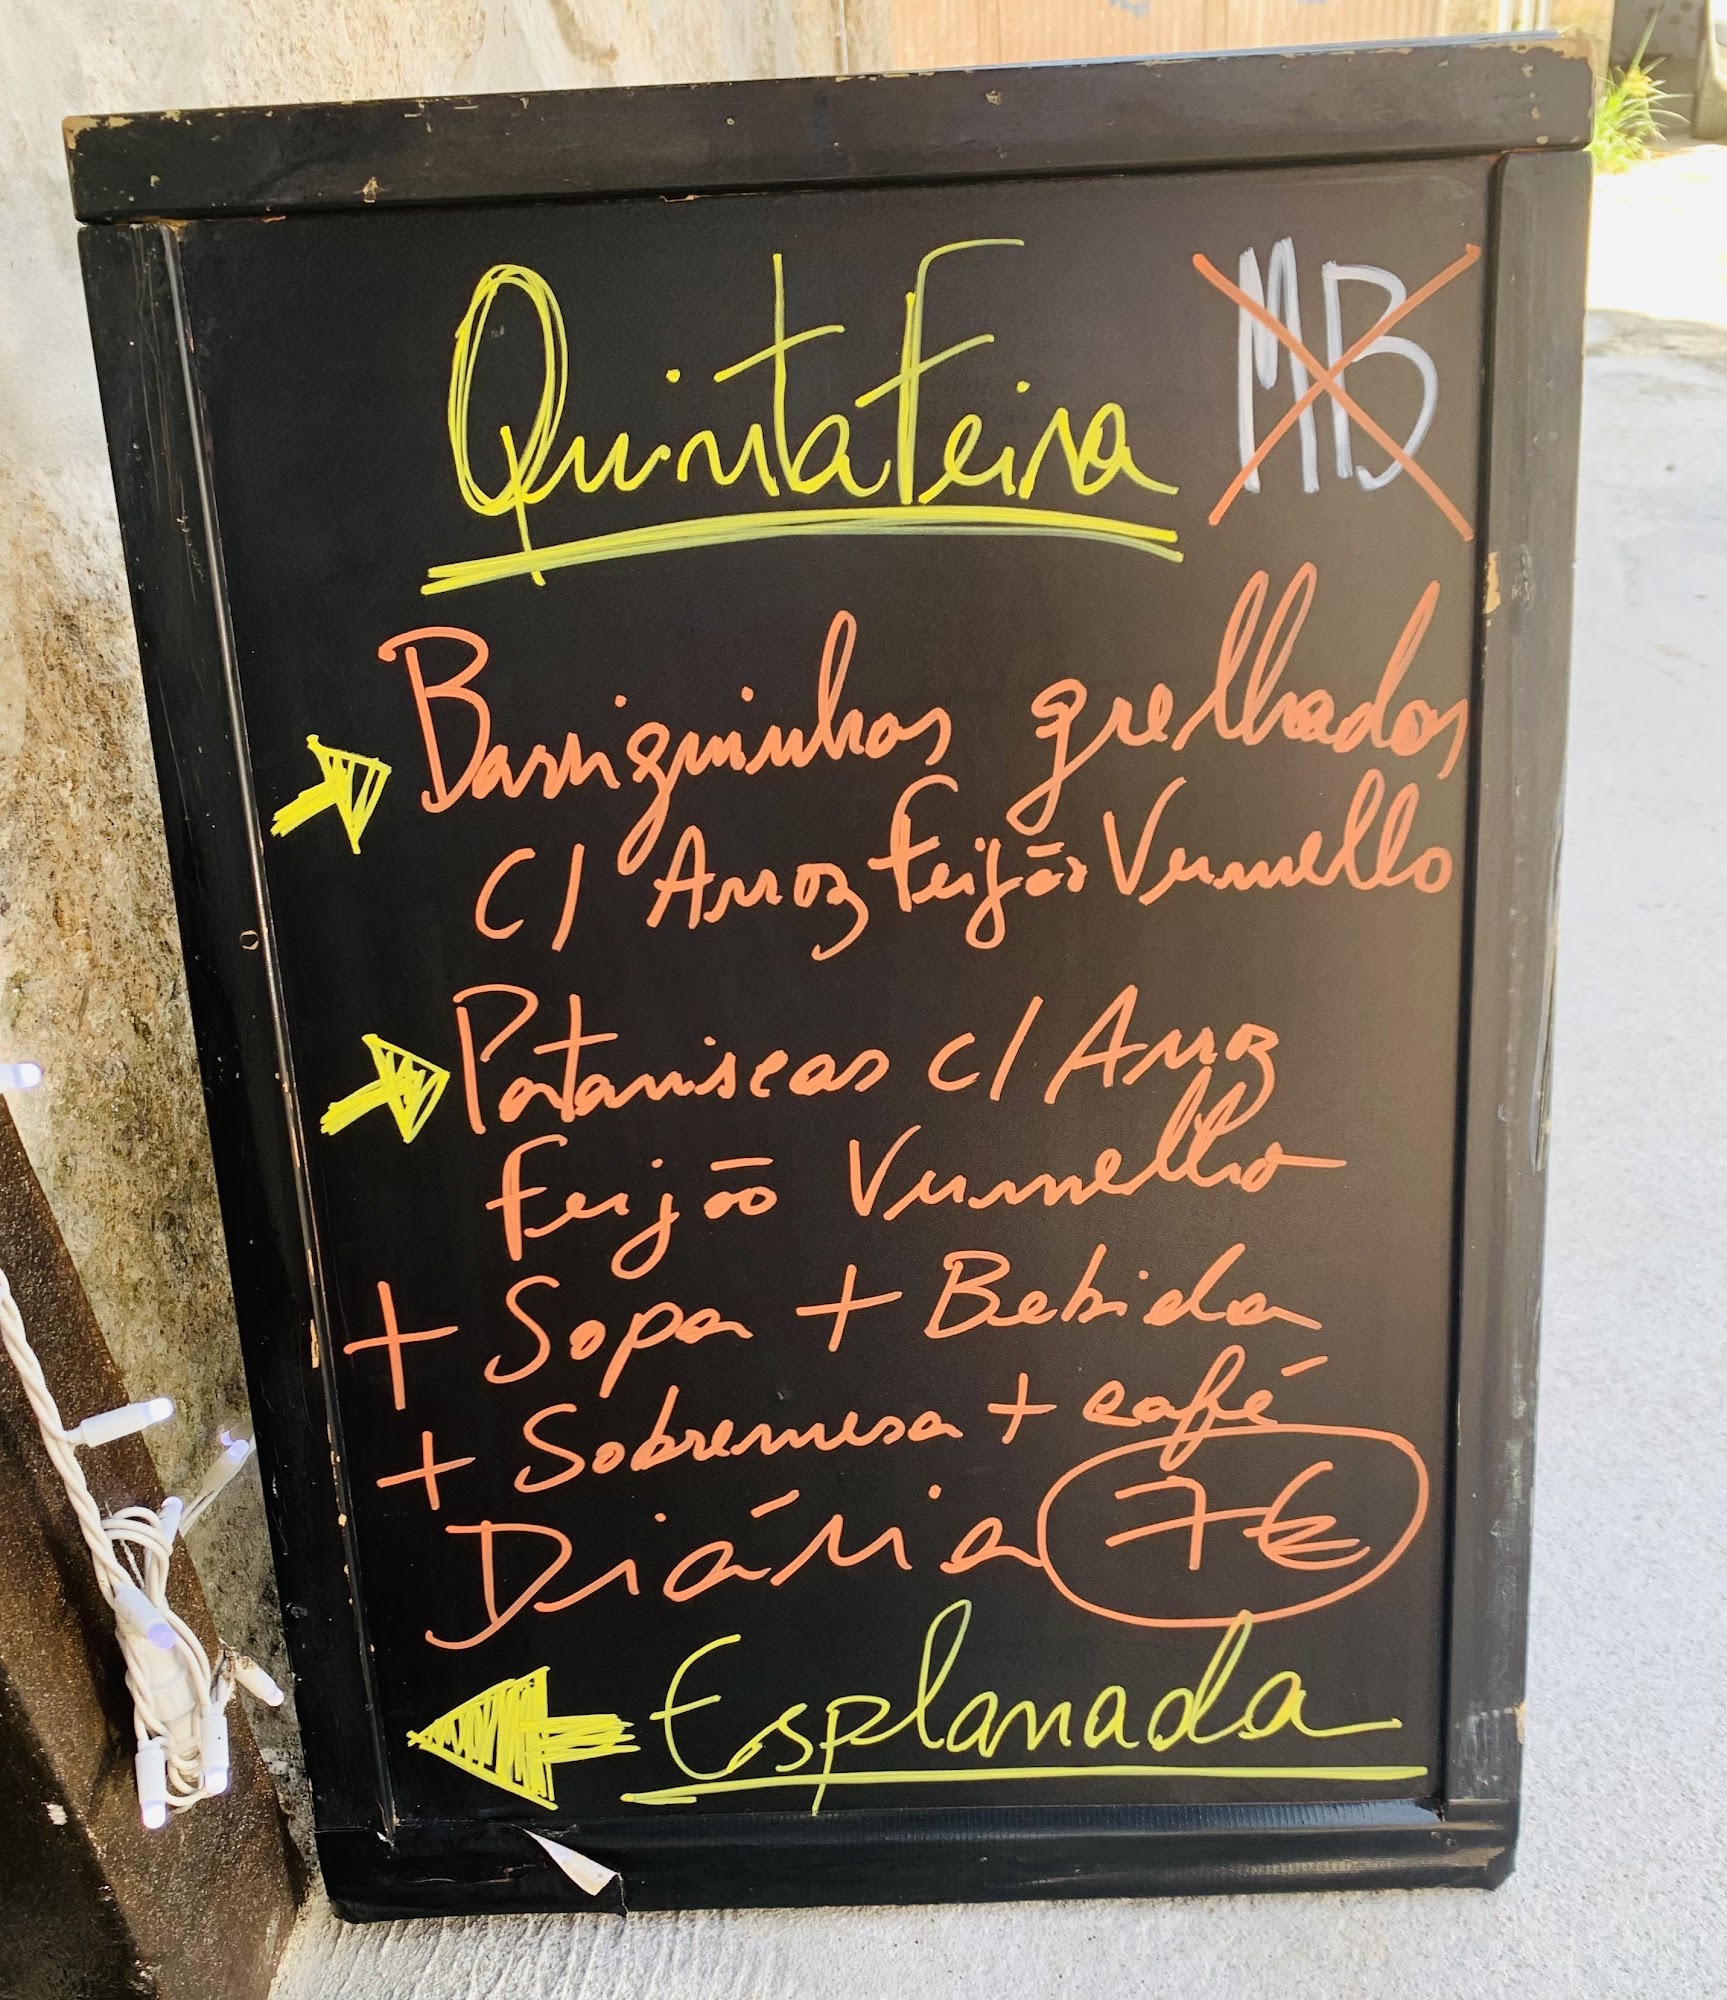 Quinta Feira MB
Barriguinhas grelhados
c/ Arroz Feijão Vermelho
Pataniscas c/ Arroz
Feijão Vermelho
+ Sopa + Bebida
+ Sobremesa + café
Diária 7€
Esplanada